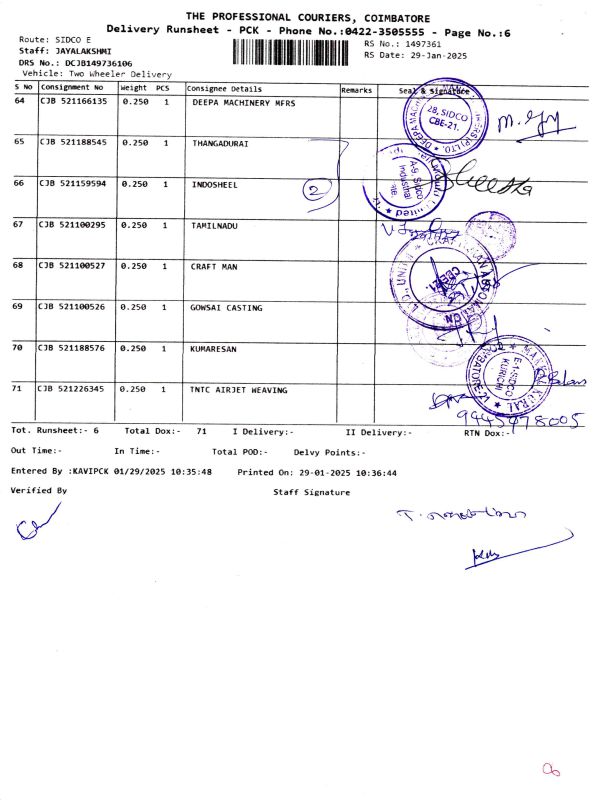 THE PROFESSIONAL COURIERS, COIMBATORE
Delivery Runsheet - PCK - Phone No.:0422-3505555 - Page No.:6
Route: SIDCO E
RS No.: 1497361
Staff: JAYALAKSHMI
RS Date: 29-Jan-2025
DRS No.: DCJB149736106
Vehicle: Two Wheeler Delivery
S No Consignment No Weight PCS Consignee Details Remarks Seal & Signature
64 CJB 521166135 0.250 1 DEEPA MACHINERY MFRS
28, SIDCO
CBE-21.
65 CJB 521188545 0.250 1 THANGADURAI
A-9 Sidco
Industrial
66 CJB 521159594 0.250 1 INDOSHEEL
2
67 CJB 521100295 0.250 1 TAMILNADU
68 CJB 521100527 0.250 1 CRAFT MAN
69 CJB 521100526 0.250 1 GOWSAI CASTING
70 CJB 521188576 0.250 1 KUMARESAN
E-1-SIDCO
KURICHI
71 CJB 521226345 0.250 1 TNTC AIRJET WEAVING
9445978005
Tot. Runsheet:- 6 Total Dox:- 71 I Delivery:- II Delivery:- RTN Dox:-
Out Time:- In Time:- Total POD:- Delvy Points:-
Entered By :KAVIPCK 01/29/2025 10:35:48 Printed On: 29-01-2025 10:36:44
Verified By Staff Signature